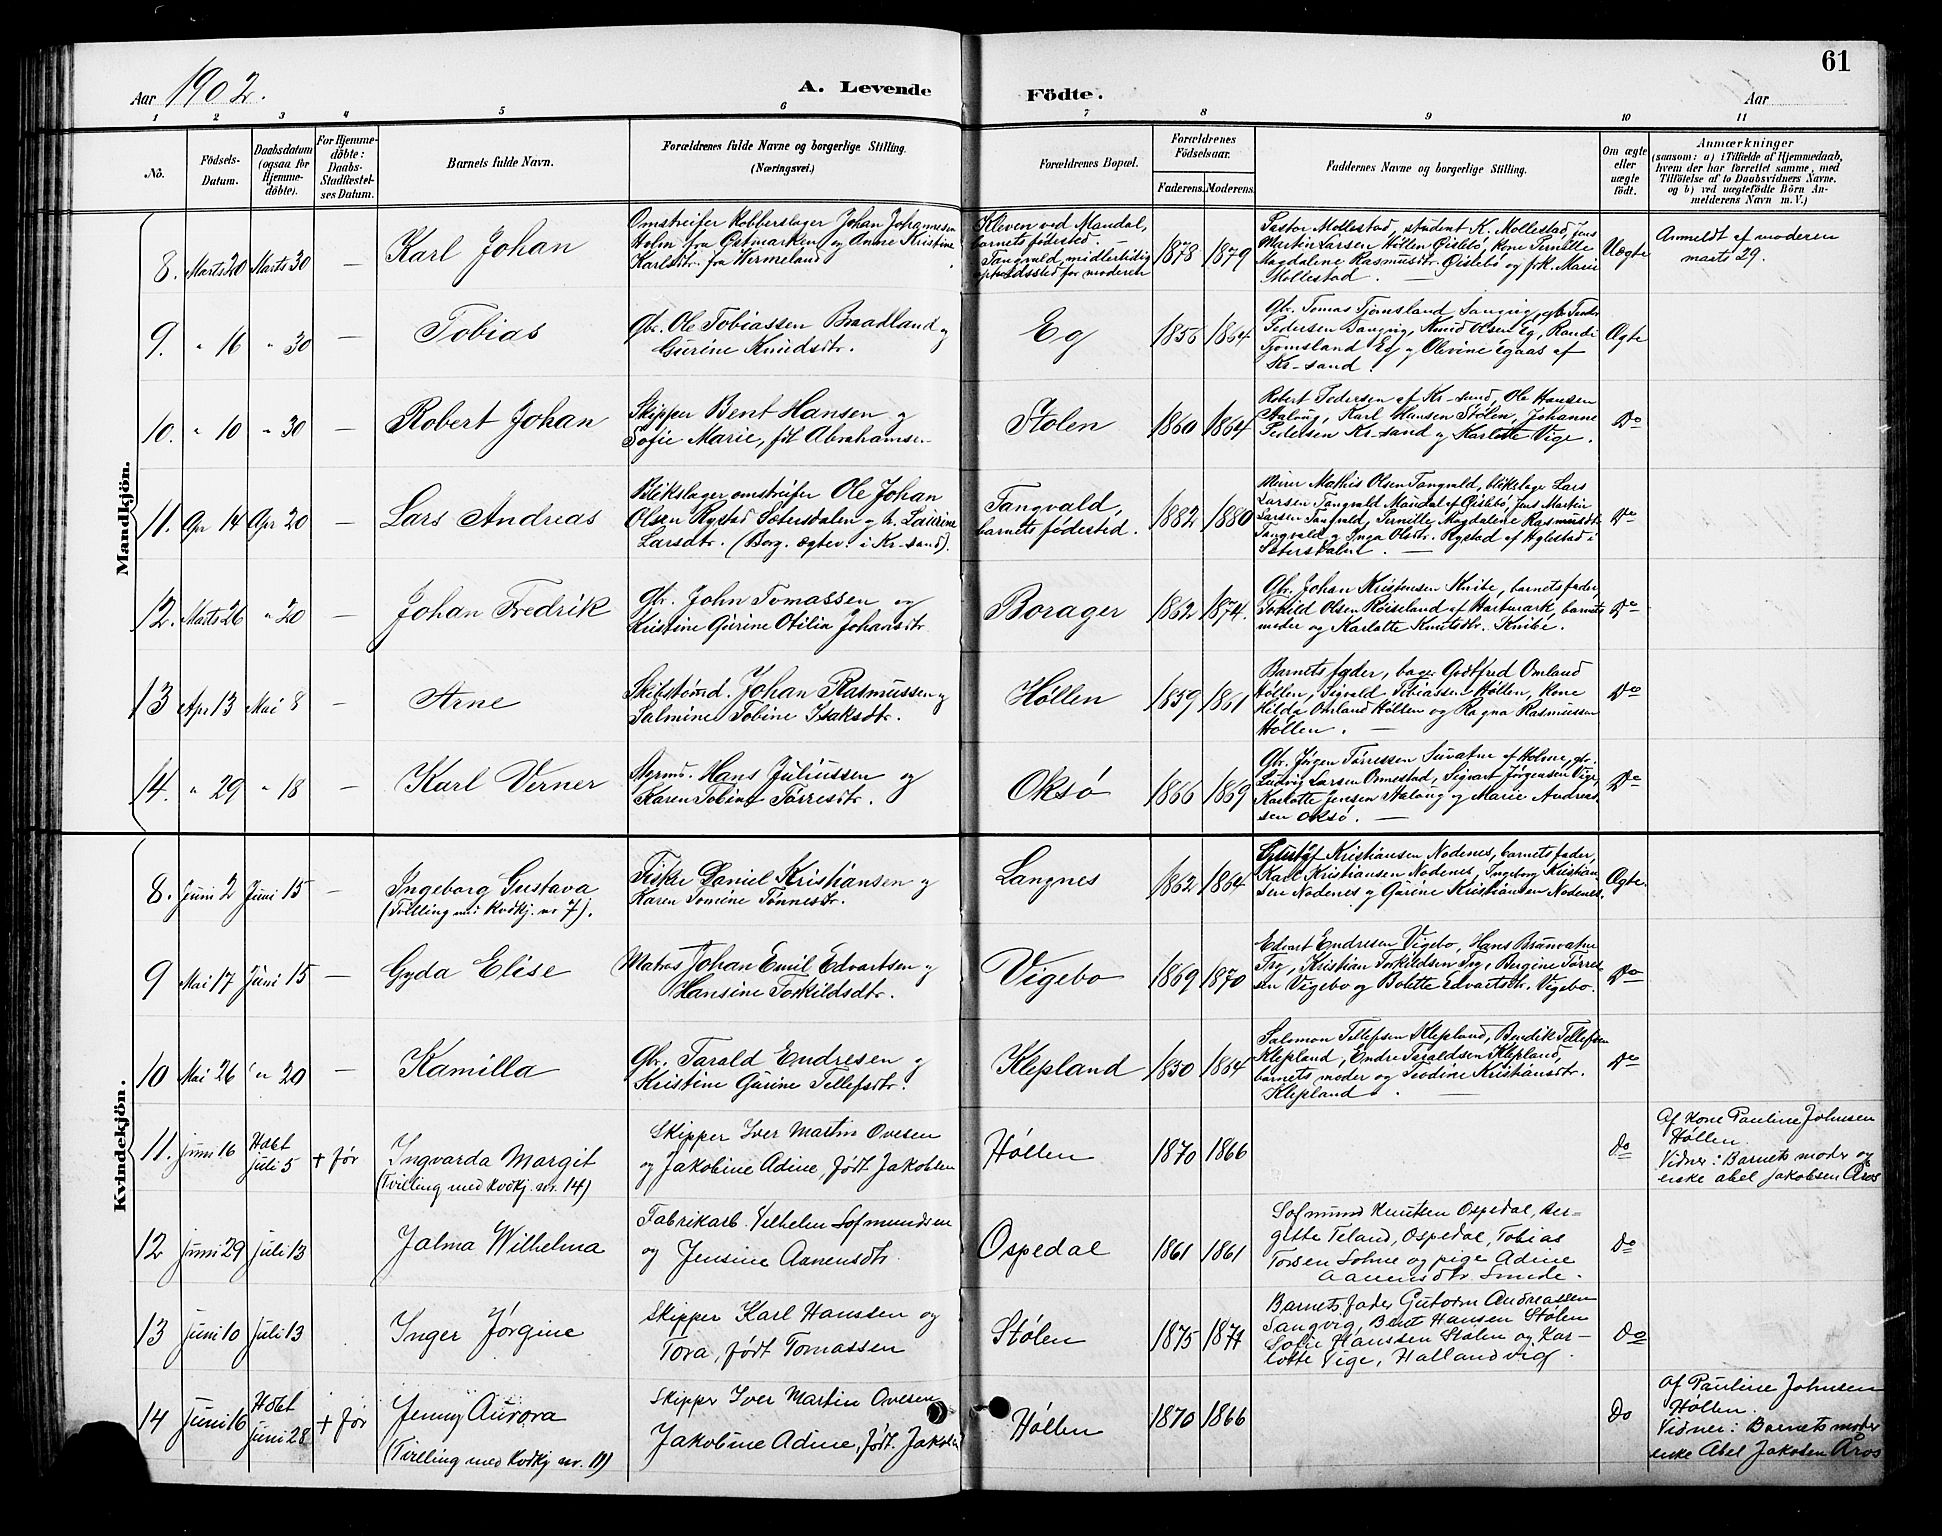 61
Aar 1902.
A. Levende Födte.
Aar
1 2 3 4 5 6 7 8 9 10 11
No.
Födsels-Datum.
Daabsdatum (ogsaa for Hjemme-döbte).
For Hjemme-döbte: Daabs-Stadfæstelses Datum.
Barnets fulde Navn.
Forældrenes fulde Navne og borgerlige Stilling.
(Næringsvei.)
Forældrenes Bopæl.
Forældrenes Födselsaar.
Faderens. Moderens.
Faddernes Navne og borgerlige Stilling.
Om ægte eller uægte födt.
Anmærkninger
(saasom: a) i Tilfælde af Hjemmedaab,
hvem der har forrettet samme, med
Tilföielse af to Daabsvidners Navne,
og b) ved uægtefödte Börn An-
melderens Navn m. V.)
Mandkjön.
8. Marts 20 Marts 30 —
Karl Johan
Omstreifer Kobberslager Johan Johannessen
Holm fra Østmarken og Anne Kristine
Karlsdtr. fra Wermeland
Kleven ved Mandal,
barnets fødested.
Tangvald, midlertidig
opholdssted for moderen
1878 1879
Pastor Mollestad, student K. Mollestad, Jens
Martin Larsen Høllen Øislebø, kone Pernille
Magdalene Rasmusdtr. Øislebø og frk. Marie
Mollestad.
Uægte
Anmeldt af moderen
marts 29.
9. " 16 " 30 —
Tobias
Gbr. Ole Tobiassen Braadland og
Gurine Knudsdtr.
Eg
1856 1864
Gbr. Tomas Tjomsland Sangvig, gbr.
Pedersen Sangvig, Knud Olsen Eg, Randi
Tjomsland Eg og Olevine Egaas af
Kr-sand.
Ægte
10. " 10 " 30 —
Robert Johan
Skipper Bent Hansen og
Sofie Marie, føt Abrahamsen
Stolen
1860 1864
Robert Pedersen af Kr-sand, Ole Hansen
Aaløug, Karl Hansen Stølen, Johanne
Pedersen Kr-sand og Karlotte Vige.
Do
11. Apr 14 Apr 20 —
Lars Andreas
Blikslager omstreifer Ole Johan
Olsen Rystad Sætersdalen og h. Laurine
Larsdtr. (Borg. ægtev. i Kr-sand).
Tangvald,
barnets fødested.
1882 1880
Murer Mathis Olsen Tangvald, blikslager Lars
Larsen Tangvald Mandal af Øislebø, Jens Martin
Larsen Tangvald, Pernille Magdalene Rasmusdtr.
Tangvald og Inga Olsdtr. Rystad af Hylestad i
Sætersdalen. —
Do
12. Marts 26 " 20 —
Johan Fredrik
Gbr. John Tomassen og
Kristine Gurine Otilia Johansdtr.
Borager
1862 1874.
Gbr. Johan Kristensen Knibe, barnets fader,
Torkild Olsen Reiseland af Hartmark, barnets
moder og Karlotte Knutsdtr. Knibe.
Do
13 Apr 13 Mai 8 —
Arne
Skibstømd. Johan Rasmussen og
Salmine Tobine Isaksdtr.
Høllen
1859 1861
Barnets fader, bager Godtfred Omland
Høllen, Sigvald Tobiassen Høllen, kone
Hilda Omland Høllen og Ragna Rasmussen
Høllen. —
Do
14. " 29 " 18 —
Karl Verner
Styrmd. Hans Juliussen og
Karen Tobine Tørresdtr.
Oksø
1866 1869
Gbr. Jørgen Tørressen af Holme, gbr.
Ludvig Larsen Ormestad, Sigvart Jørgensen Vige,
Karlotte Jensen Aaløug og Marie Andreas-
sen Oksø. —
Do
Kvindekjön.
8. Juni 2 Juni 15 —
Ingeborg Gustava
(Tvilling med Kvdkj. nr 7).
Fisker Daniel Kristiansen og
Karen Tomine Tønnesdtr.
Langnes
1862 1864
Kristiansen Nodenes, barnets fader,
Karl Kristiansen Nodenes, Ingeborg Kristian-
sen Nodenes og Gurine Kristiansen Nodenes.
Ægte.
9 Mai 17 Juni 15 —
Gyda Elise
Matros Johan Emil Edvartsen og
Hansine Torkildsdtr.
Vigebo
1869 1870
Edvart Endresen Vigebo, Hans Brunvatne
Try, Kristian Torkildsen Try, Bergine Tørres-
sen Vigebo og Bolette Edvartsdtr. Vigebo.
Do
10 Mai 26 " 20 —
Kamilla
Gbr. Tarald Endresen og
Kristine Gurine Tellefsdtr.
Klepland
1850 1864
Salomon Tellefsen Klepland, Bendik Tellefsen
Klepland, Endre Taraldsen Klepland,
barnets moder og Teodine Kristiansdtr.
Klepland. —
Do
11. Juni 16 Hdbt Juli 5 + før
Ingvarda Margit
(Tvilling med Kvdkj. nr. 14)
Skipper Iver Martin Ovesen
og Jakobine Adine, født Jakobsen
Høllen
1870 1866
Do
Af Kone Pauline Johnsen
Høllen.
Vidner: Barnets moder og
enke Abel Jakobsen Åros
12 Juni 29 Juli 13
Jalma Wilhelma
Fabrikarb. Vilhelm Sofmundsen
og Jensine Aanensdtr.
Ospedal
1861 1861
Sofmund Knutsen Ospedal, Ber-
gitte Teland, Ospedal, Tobias
Torsen Lohne og pige Adine
Aanensdtr.
Do
13 Juni 10 Juli 13
Inger Jørgine
Skipper Karl Hanssen og
Tora, født Tomassen
Stølen
1875 1871
Barnets fader Gutorm Andreassen
Sangvig, Bent Hansen Stølen
Sofie Hanssen Stølen og Kar-
lotte Vige, Hallandvig.
Do
14 Juni 16 Hdbt Juni 28 + før
Jenny Aurora
(Tvilling med Kvdkj nr. 11)
Skipper Iver Martin Ovesen
Jakobine Adine, født. Jakobsen
Høllen
1870 1866
Do
Af Pauline Johnsen
Høllen.
Vidner: Barnets moder
enke Abel Jakobsen Åros